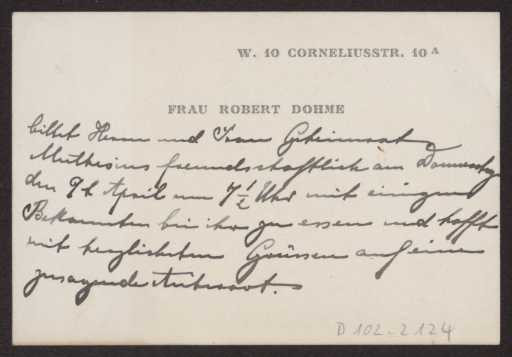 W. 10 CORNELIUSSTR. 10 A
FRAU ROBERT DOHME
bittet Herrn und Frau Geheimrat
Muthesius freundschaftlich am Donnerstag
den 9t April um 7 1/2 Uhr mit einigen
Bekannten bei ihr zu essen und hofft
mit herzlichsten Grüssen auf eine
zusagende Antwort.
D 102-2124